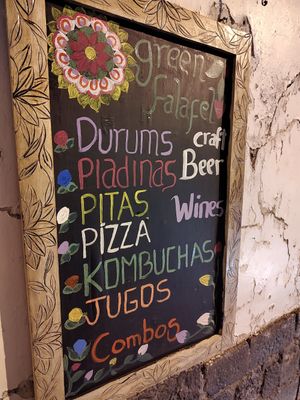 green
falafel
Durums
Piadinas
PITAS
PIZZA
KOMBUCHAS
JUGOS
Combos
craft
Beer
Wines